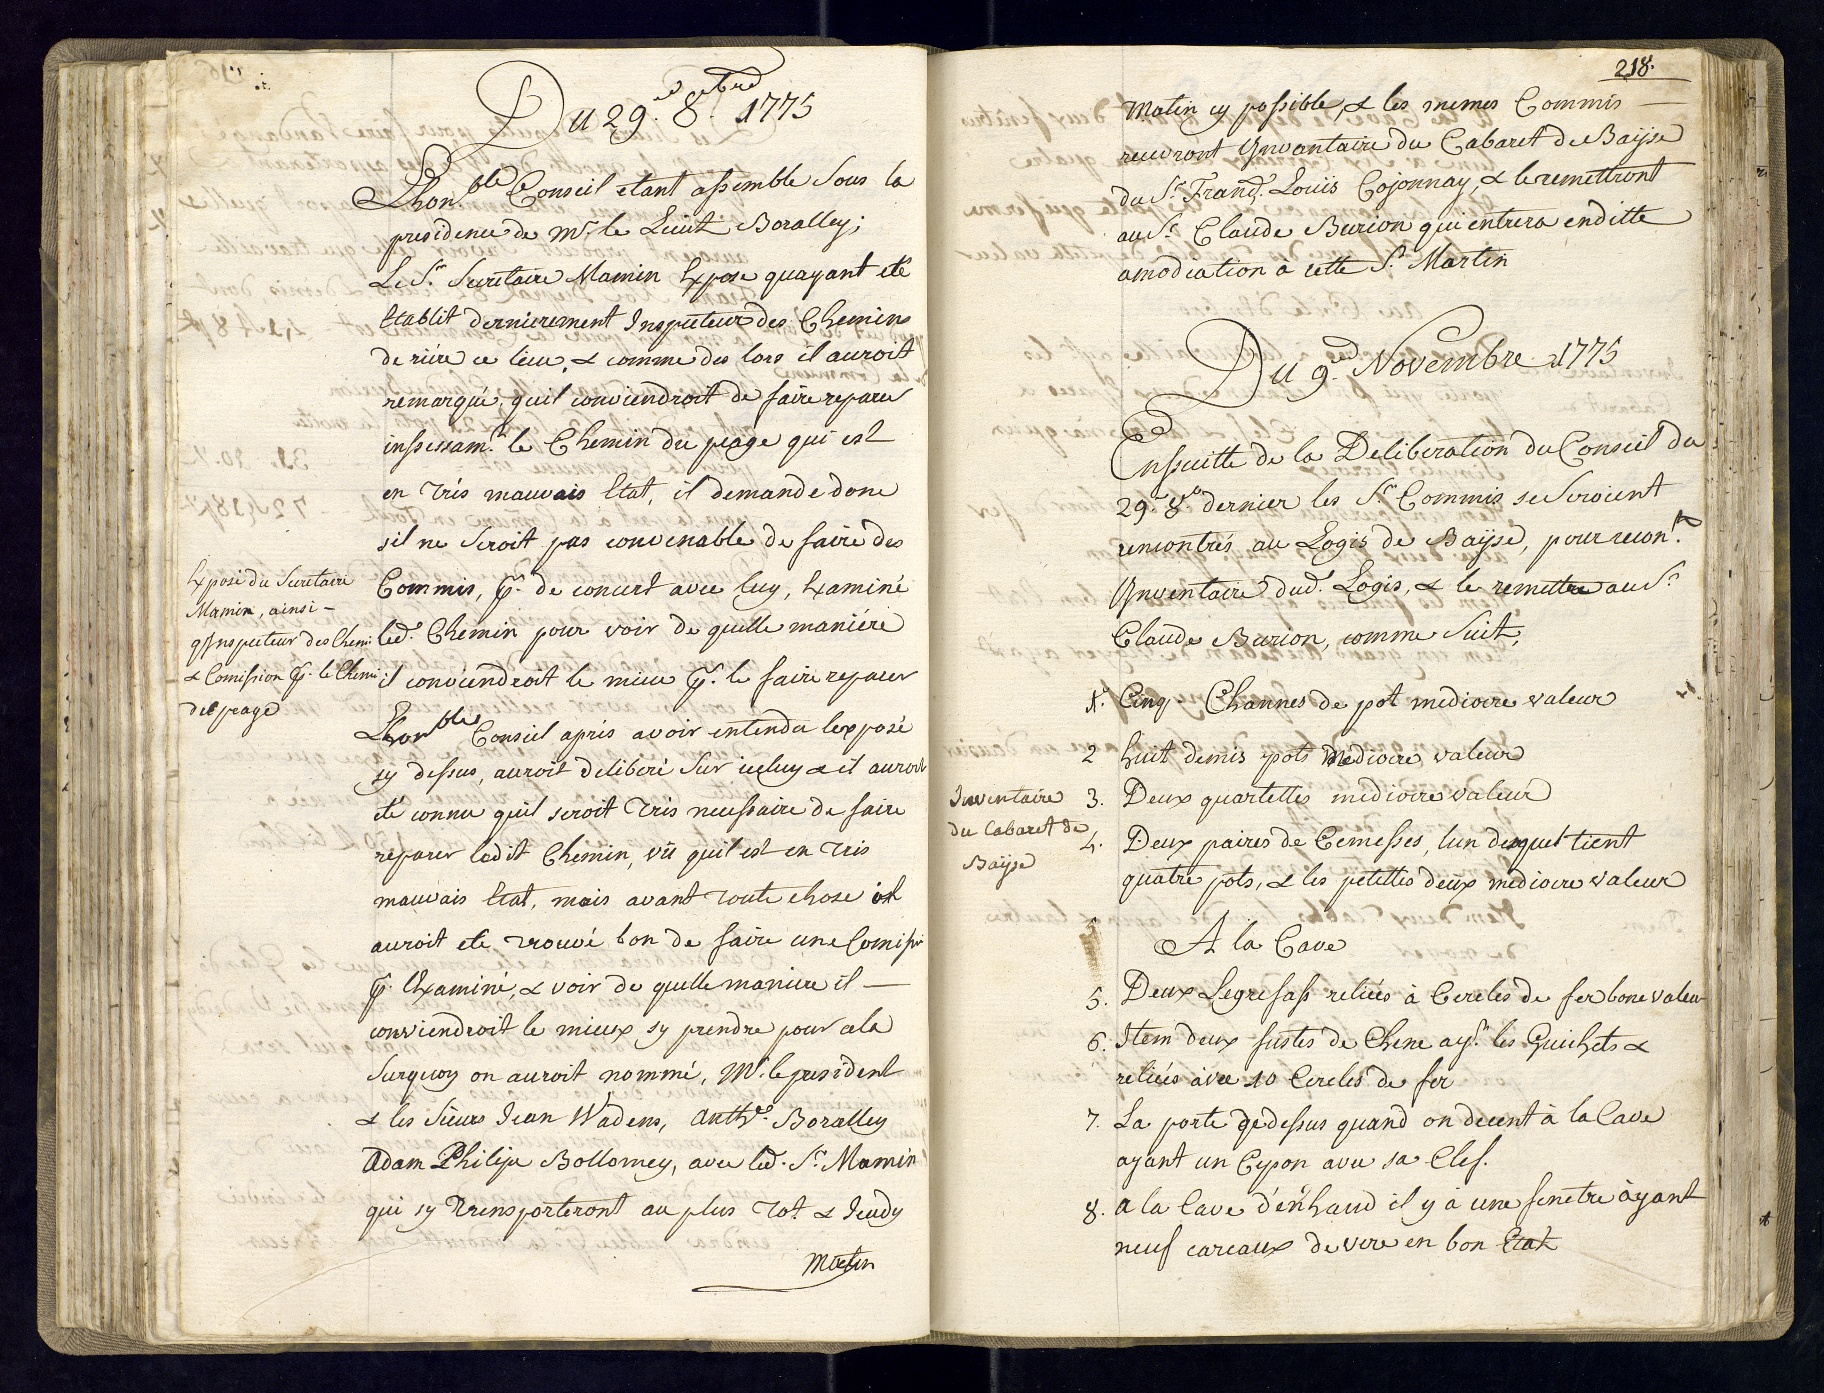 Du 29.e 8.bre 1775
Lhon.ble Conseil etant assemble sous la
presidence de Mr. le Lieut. Boralley;
Le Sr. Secretaire Mamin Expose quayant ete
Etablit dernierement Inspecteur des Chemins
de riére ce lieu, & comme des lors il auroit
remarqué, quil conviendroit de faire reparer
inssessam.t le Chemin du peage qui est
en trés mauvais Etat, il demande donc
sil ne Seroit pas convenable de faire des
Commis, p.r de concert avec luy, Examiné
led.t Chemin pour voir de quelle maniére
il conviendroit le mieu p.r le faire reparer
Expose du Secretaire
Mamin, ainsi –
q'Inspecteur des Chemi
& Comission p.r le Chemi
de peage
Lhon.ble Conseil aprés avoir entendu lexposé
sy dessus, auroit deliberé Sur iceluy & il auroit
ete connu quil seroit tres necessaire de faire
reparer ledit Chemin, vû quil est en tres
mauvais Etat, mais avant toute chose il
auroit ete trouvé bon de faire une Comissi
p.r Examiné, & voir de quelle maniere il –
conviendroit le mieux sy prendre pour cela
Surquoy on auroit nommé, Mr. le president
& les Sieurs Jean Wadens, Anth.e Boralley
Adam Philipe Bollomey, avec led. Sr. Mamin
qui sy transporteront au plus tot & Jeudy
Matin
218.
Matin sy possible, & les memes Commis –
recevront Inventaire du Cabaret de Baijse
du Sr. Franç. Louïs Cojonnay, & le remettront
au Sr. Claude Burion qui entrera en ditte
amodiation à cette St. Martin
Du 9.e Novembre 1775
Enssuitte de la Deliberation du Conseil du
29.e 8.bre dernier les Srs. Commis se Seroient
rencontrés au Logis de Baijse, pour recon.tre
Inventaire dud.t Logis, & le remettre au Sr.
Claude Burion, comme Suit;
1.o Cinq. Channes de pot mediocre valeur
2 huit demis pots Mediocre valeur
Inventaire
du Cabaret de
Baijse
3. Deux quartettes mediocre valeur
4. Deux paires de Cemesses, lun desquel tient
quatre pots, & les petittes deux mediocre valeur
A la Cave
5. Deux Legrefass reliées à Cercles de fer bone valeur
6. Item deux fustes de Chene ay.t les Guichets &
reliées avec 10 Cercles de fer
7. La porte dedessus quand on decent à la Cave
ayant un Cypon avec sa Clef.
8. A la Cave d'enhaud il y à une fenetre àyant
neuf careaux de vere en bon Etat